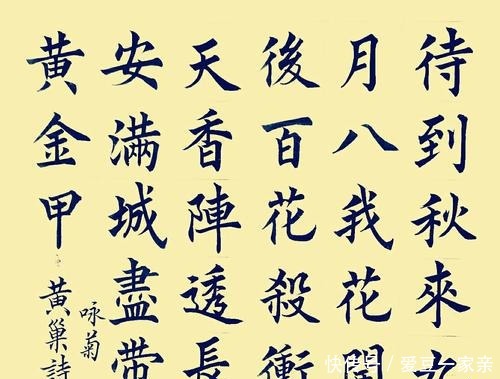 待到秋來九
月八我花開
後百花殺衝
天香陣透長
安滿城盡帶
黃金甲
咏菊
黃巢詩
快传号 / 爱豆一家亲